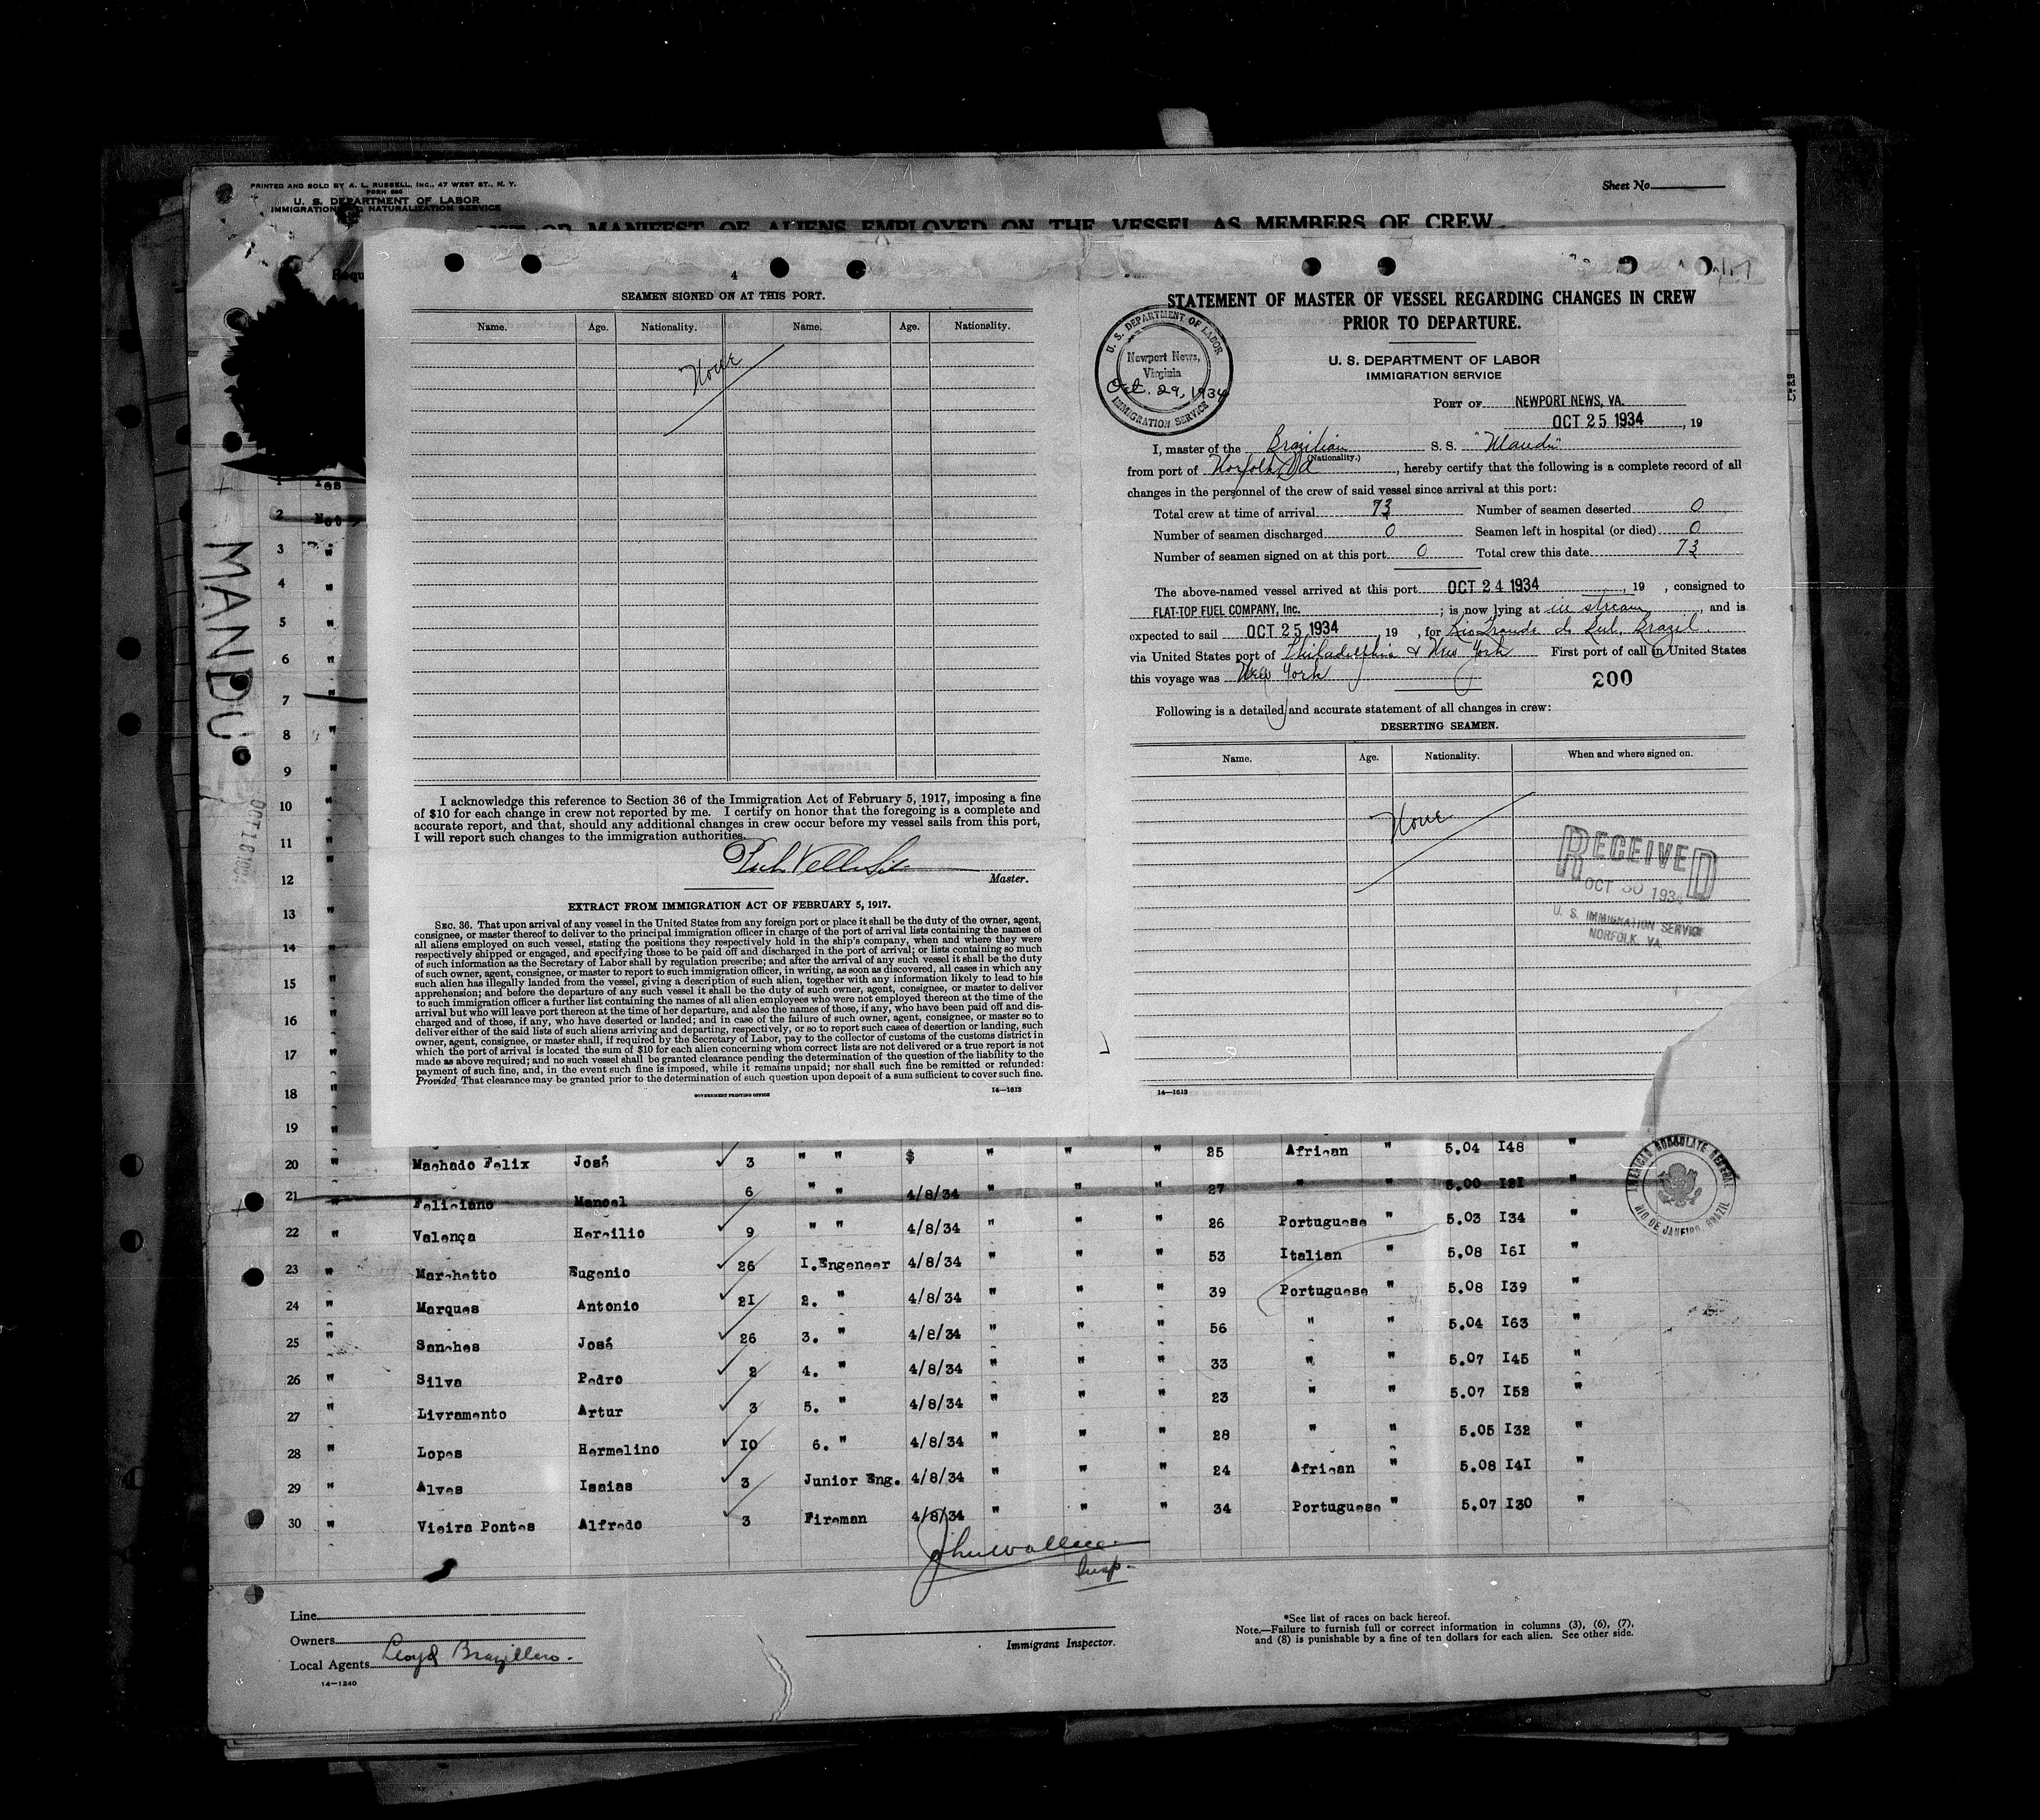 PRINTED AND SOLD BY A. L. RUSSELL, INC., 47 WEST ST., N. Y.
FORM 680
U. S. DEPARTMENT OF LABOR
IMMIGRATION AND NATURALIZATION SERVICE
Sheet No.
LIST OR MANIFEST OF ALIENS EMPLOYED ON THE VESSEL AS MEMBERS OF CREW
MANDU
4
SEAMEN SIGNED ON AT THIS PORT.
Name. Age. Nationality. Name. Age. Nationality.
None
I acknowledge this reference to Section 36 of the Immigration Act of February 5, 1917, imposing a fine
of $10 for each change in crew not reported by me. I certify on honor that the foregoing is a complete and
accurate report, and that, should any additional changes in crew occur before my vessel sails from this port,
I will report such changes to the immigration authorities.
Master.
EXTRACT FROM IMMIGRATION ACT OF FEBRUARY 5, 1917.
SEC. 36. That upon arrival of any vessel in the United States from any foreign port or place it shall be the duty of the owner, agent,
consignee, or master thereof to deliver to the principal immigration officer in charge of the port of arrival lists containing the names of
all aliens employed on such vessel, stating the positions they respectively hold in the ship's company, when and where they were
respectively shipped or engaged, and specifying those to be paid off and discharged in the port of arrival; or lists containing so much
of such information as the Secretary of Labor shall by regulation prescribe; and after the arrival of any such vessel it shall be the duty
of such owner, agent, consignee, or master to report to such immigration officer, in writing, as soon as discovered, all cases in which any
such alien has illegally landed from the vessel, giving a description of such alien, together with any information likely to lead to his
apprehension; and before the departure of any such vessel it shall be the duty of such owner, agent, consignee, or master to deliver
to such immigration officer a further list containing the names of all alien employees who were not employed thereon at the time of the
arrival but who will leave port thereon at the time of her departure, and also the names of those, if any, who have been paid off and dis-
charged and of those, if any, who have deserted or landed; and in case of the failure of such owner, agent, consignee, or master so to
deliver either of the said lists of such aliens arriving and departing, respectively, or so to report such cases of desertion or landing, such
owner, agent, consignee, or master shall, if required by the Secretary of Labor, pay to the collector of customs of the customs district in
which the port of arrival is located the sum of $10 for each alien concerning whom correct lists are not delivered or a true report is not
made as above required; and no such vessel shall be granted clearance pending the determination of the question of the liability to the
payment of such fine, and, in the event such fine is imposed, while it remains unpaid; nor shall such fine be remitted or refunded:
Provided That clearance may be granted prior to the determination of such question upon deposit of a sum sufficient to cover such fine.
GOVERNMENT PRINTING OFFICE 14—1613
STATEMENT OF MASTER OF VESSEL REGARDING CHANGES IN CREW
PRIOR TO DEPARTURE.
U. S. DEPARTMENT OF LABOR
IMMIGRATION SERVICE
U. S. DEPARTMENT OF LABOR
Newport News,
Virginia
Oct. 29, 1934
IMMIGRATION SERVICE
PORT OF NEWPORT NEWS, VA.
OCT 25 1934, 19
I, master of the Brazilian S. S. "Mandu"
(Nationality.)
from port of Norfolk Va, hereby certify that the following is a complete record of all
changes in the personnel of the crew of said vessel since arrival at this port:
Total crew at time of arrival 73 Number of seamen deserted 0
Number of seamen discharged 0 Seamen left in hospital (or died) 0
Number of seamen signed on at this port 0 Total crew this date 73
The above-named vessel arrived at this port OCT 24 1934, 19 , consigned to
FLAT-TOP FUEL COMPANY, Inc. ; is now lying at in stream, and is
expected to sail OCT 25 1934 19 , for Rio Grande do Sul, Brazil.
via United States port of Philadelphia & New York First port of call in United States
this voyage was New York
200
Following is a detailed and accurate statement of all changes in crew:
DESERTING SEAMEN.
Name. Age. Nationality. When and where signed on.
None
RECEIVED
OCT 30 1934
U. S. IMMIGRATION SERVICE
NORFOLK, VA.
14—1613
1 Yes
2 Not
3 "
4 "
5 "
6 "
7 "
8 "
9 "
10 "
11 "
12 "
13 "
14 "
15 "
16 "
17 "
18 "
19 "
20 " Machado Felix José 3 " " $ " " " 25 African " 5.04 I48 "
21 " Feliciano Manoel 6 " " 4/8/34 " " " 27 " " 5.00 I2I "
22 " Valença Hercilio 9 " " 4/8/34 " " " 26 Portuguese " 5.03 I34 "
23 " Marchetto Eugenio 26 I.Engeneer 4/8/34 " " " 53 Italian " 5.08 I6I "
24 " Marques Antonio 2I 2. " 4/8/34 " " " 39 Portuguese " 5.08 I39 "
25 " Sanches José 26 3. " 4/8/34 " " " 56 " " 5.04 I63 "
26 " Silva Pedro 2 4. " 4/8/34 " " " 33 " " 5.07 I45 "
27 " Livramento Artur 3 5. " 4/8/34 " " " 23 " " 5.07 I52 "
28 " Lopes Hermelino I0 6. " 4/8/34 " " " 28 " " 5.05 I32 "
29 " Alves Isaias 3 Junior Eng. 4/8/34 " " " 24 African " 5.08 I4I "
30 " Vieira Pontes Alfredo 3 Fireman 4/8/34 " " " 34 Portuguese " 5.07 I30 "
AMERICAN CONSULATE GENERAL
RIO DE JANEIRO, BRAZIL
John Wallace
Insp.
Line
Owners
Local Agents Lloyd Brazillero.
14—1240
Immigrant Inspector.
*See list of races on back hereof.
Note.—Failure to furnish full or correct information in columns (3), (6), (7),
and (8) is punishable by a fine of ten dollars for each alien. See other side.